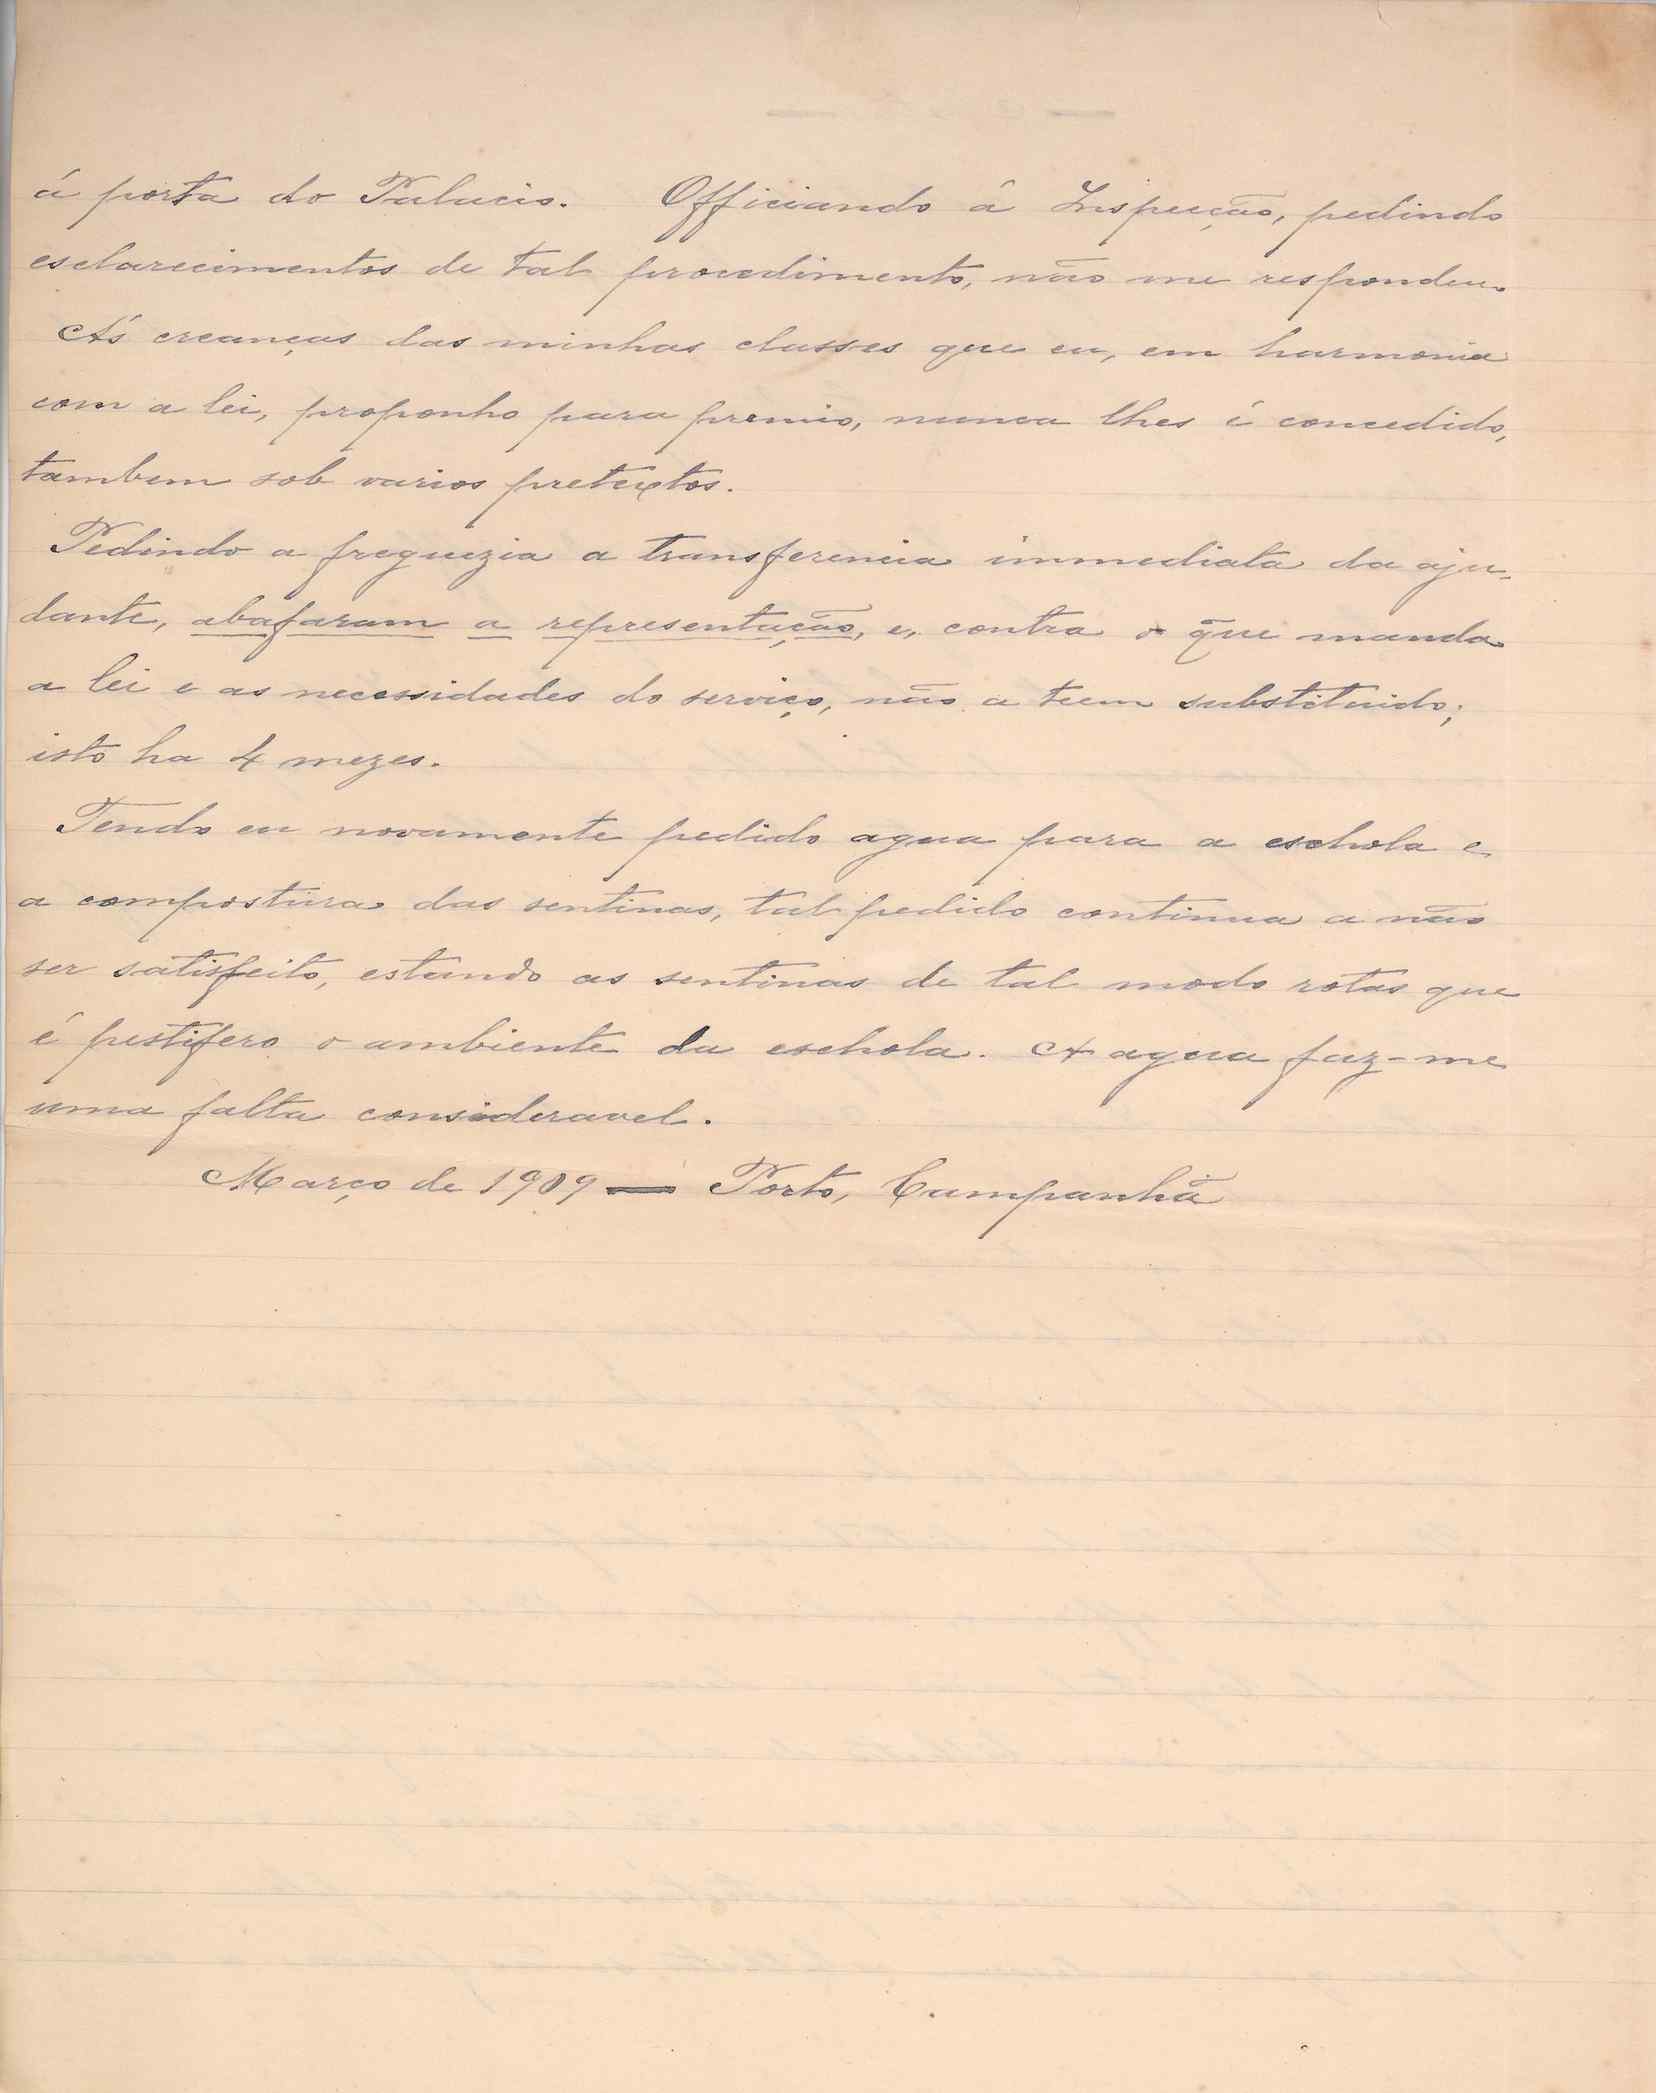 á porta do Palacio. Officiando â Inspecção, pedindo
esclarecimentos de tal procedimento, não me respondeu.
Ás creanças das minhas classes que eu, em harmonia
com a lei, proponho para premio, nunca lhes é concedido,
tambem sob varios pretextos.
Pedindo a freguezia a transferencia immediata da aju-
dante, abafaram a representação, e, contra o que manda
a lei e as necessidades do serviço, não a teem substituido;
isto ha 4 mezes.
Tendo eu novamente pedido agua para a eschola e
a compostura das sentinas, tal pedido continua a não
ser satisfeito, estando as sentinas de tal modo rotas que
é pestifero o ambiente da eschola. A agua faz-me
uma falta consideravel.
Março de 1909 — Porto, Campanhã